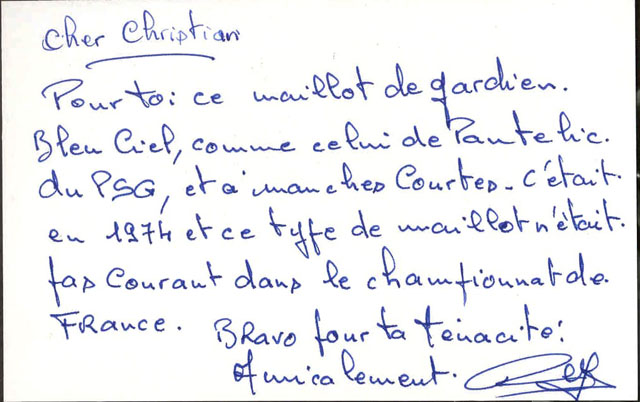 Cher Christian
Pour toi ce maillot de gardien.
Bleu Ciel, comme celui de Pantelic.
du PSG, et à manches Courtes - c'était.
en 1974 et ce type de maillot n'était.
pas Courant dans le championnat de.
FRance.
BRavo pour ta ténacité!
Amicalement.